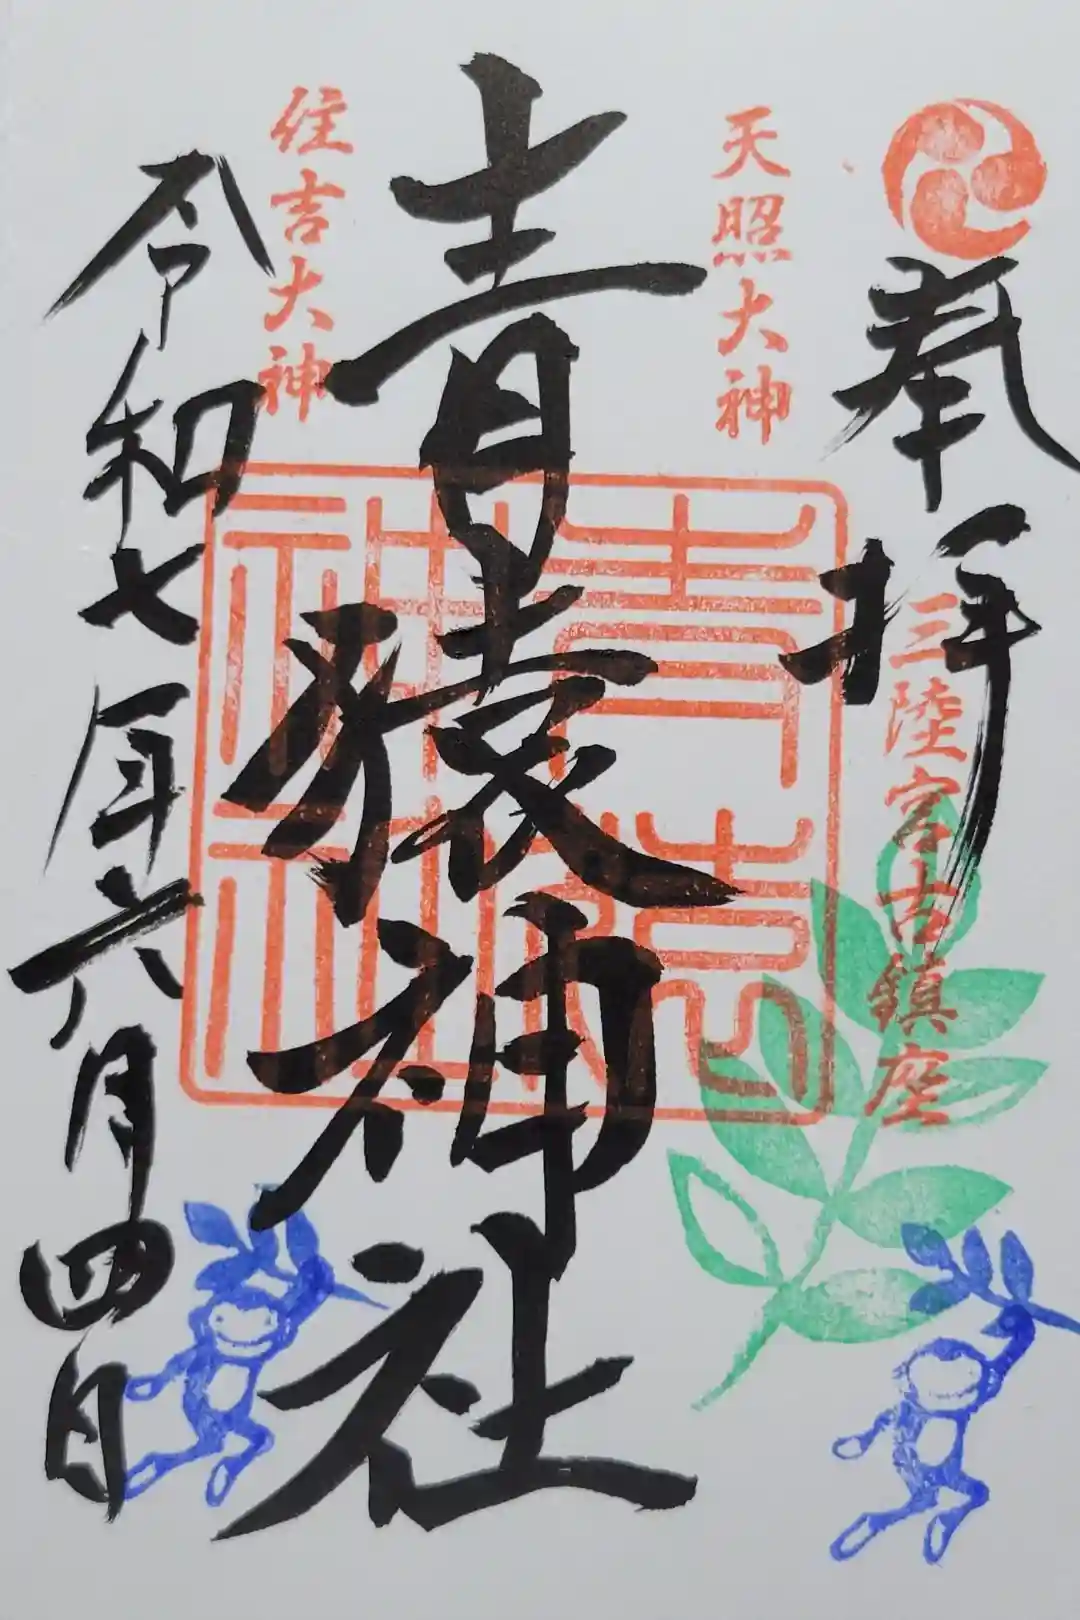 奉拝
三陸宮古鎮座
天照大神
青猿神社
青猿神社
住吉大神
令和七年六月四日